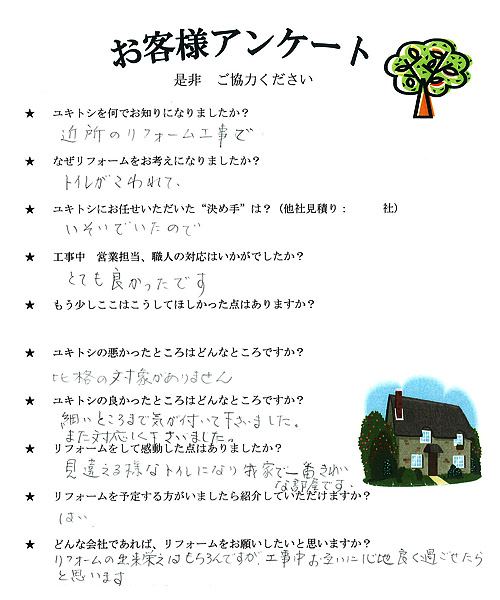 お客様アンケート
是非 ご協力ください
★ ユキトシを何でお知りになりましたか？
近所のリフォーム工事で
★ なぜリフォームをお考えになりましたか？
トイレがこわれて、
★ ユキトシにお任せいただいた“決め手”は？（他社見積り： 社）
いそいでいたので
★ 工事中 営業担当、職人の対応はいかがでしたか？
とても良かったです
★ もう少しここはこうしてほしかった点はありますか？
★ ユキトシの悪かったところはどんなところですか？
比格の対象がありません
★ ユキトシの良かったところはどんなところですか？
細いところまで気が付いて下さいました。
また対応して下さいました。
★ リフォームをして感動した点はありましたか？
見違える様なトイレになり我家で一番きれい
な部屋です。
★ リフォームを予定する方がいましたら紹介していただけますか？
はい
★ どんな会社であれば、リフォームをお願いしたいと思いますか？
リフォームの出来栄えはもちろんですが、工事中お互いに心地良く過ごせたら
と思います